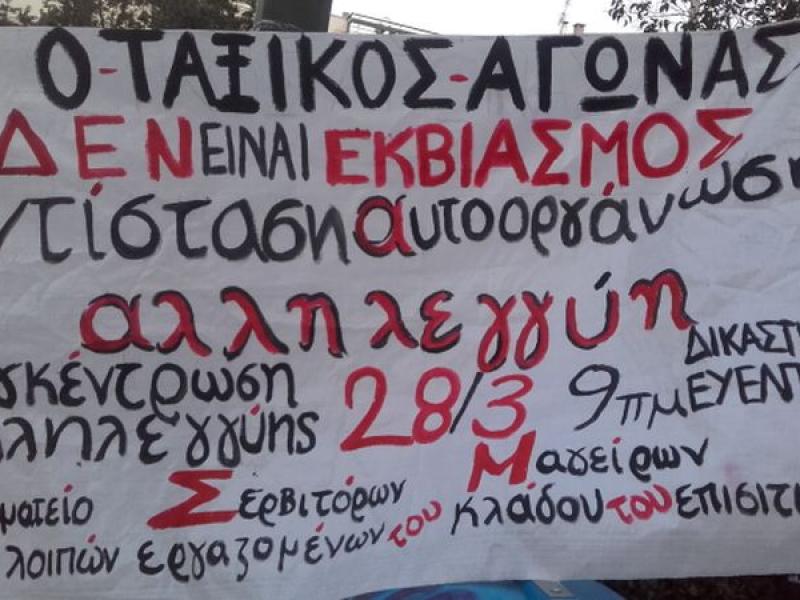 Ο-ΤΑΞΙΚΟΣ-ΑΓΩΝΑΣ
ΔΕΝ ΕΙΝΑΙ ΕΚΒΙΑΣΜΟΣ
ντίσταση αυτοοργάνωση
αλληλεγγύη
γκέντρωση 28/3 9πμ ΔΙΚΑΣΤ
λληλεγγύης ΕΥΕΛΠ
ματείο Σερβιτόρων Μαγείρων
λοιπών εργαζομένων του κλάδου του επισιτι